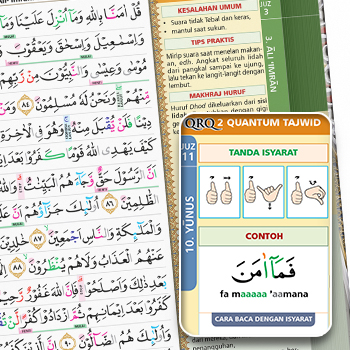 قُلْ ءَامَنَّا بِٱللَّهِ وَمَآ أُنزِلَ عَلَيْنَا
وَإِسْمَٰعِيلَ وَإِسْحَٰقَ وَيَعْقُوبَ
مُوسَىٰ وَعِيسَىٰ وَٱلنَّبِيُّونَ مِن رَّبِّهِمْ
مِّنْهُمْ وَنَحْنُ لَهُۥ مُسْلِمُونَ ٨٤
دِينًا فَلَن يُقْبَلَ مِنْهُ وَهُوَ فِى ٱلْءَاخِرَةِ
كَيْفَ يَهْدِى ٱللَّهُ قَوْمًا كَفَرُوا۟ بَعْدَ
أَنَّ ٱلرَّسُولَ حَقٌّ وَجَآءَهُمُ ٱلْبَيِّنَٰتُ
ٱلظَّٰلِمِينَ ٨٦ أُو۟لَٰٓئِكَ جَزَآؤُهُمْ أَنَّ
وَٱلْمَلَٰٓئِكَةِ وَٱلنَّاسِ أَجْمَعِينَ ٨٧ خَٰلِدِينَ
عَنْهُمُ ٱلْعَذَابُ وَلَا هُمْ يُنظَرُونَ ٨٨
بَعْدِ ذَٰلِكَ وَأَصْلَحُوا۟ فَإِنَّ ٱللَّهَ غَفُورٌ رَّحِيمٌ
كَفَرُوا۟ بَعْدَ إِيمَٰنِهِمْ
وَأُو۟لَٰٓئِكَ هُمُ ٱلضَّآلُّونَ ٩٠
KESALAHAN UMUM
• Suara tidak Tebal dan keras,
• mantul saat sukun.
TIPS PRAKTIS
Mirip suara saat menelan makan-
an, edh. Angkat seluruh lidah
dari pangkal sampai ke ujung,
lalu tekan ke langit-langit dengan
lembut.
MAKHRAJ HURUF
Huruf Dhod dikeluarkan dari sisi
JUZ
3
3
ĀLI 'IMRĀN
QRQ 2 QUANTUM TAJWID
JUZ
11
10. YŪNUS
TANDA ISYARAT
CONTOH
فَمَآ ءَامَنَ
fa maaaaa 'aamana
CARA BACA DENGAN ISYARAT